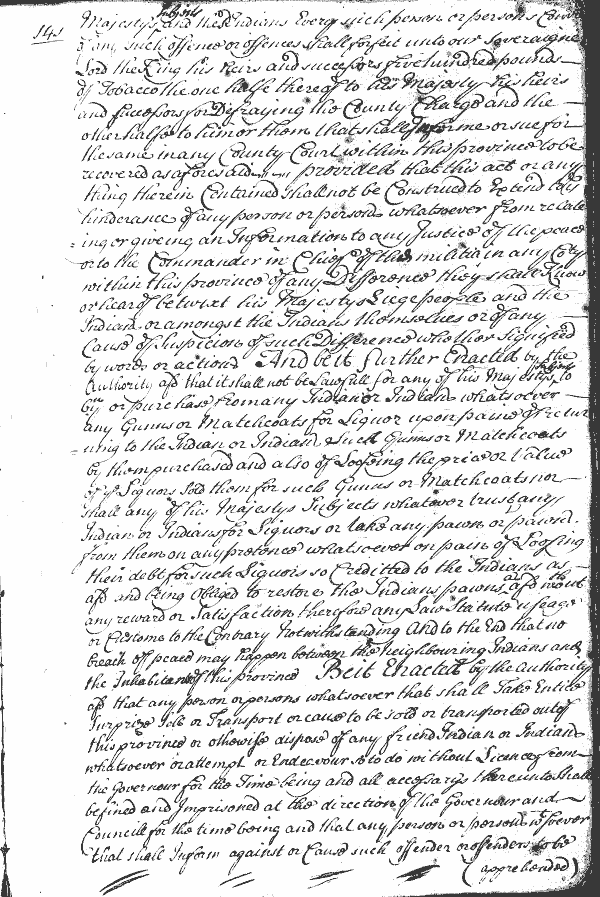 141
Majestys Subjects and these Indians Every such person or persons Convict
of any such offence or offences shall forfeit unto our Soveraigne
Lord the King his heirs and successors five hundred pounds
of Tobacco the one halfe thereof to his Majesty his heirs
and successors for Defraying the County Charge and the
other halfe to him or them that shall Informe or sue for
the same in any County Court within this province to be
recovered as aforesaid provided that this act or any
thing therein Contained shall not be Construed to Extend to ye
hinderance of any person or persons whatsoever from relate
=ing or giveing an Information to any Justice of the peace
or to the Commander in Chief of the militia in any Coty
within this province of any Difference they shall know
or hear of betwixt his Majestys Liege people and the
Indians or amongst the Indians themselves or of any
Cause of Suspicion of such Difference whether signified
by words or actions And be it further Enacted by the
Authority afd that it shall not be Lawfull for any of his Majestys Subjects to
buy or purchase from any Indian or Indians whatsoever
any Gunns or Matchcoats for Liquor upon paine of retur
=ning to the Indian or Indians such Gunns or Matchcoats
by them purchased and also of Looseing the price or Value
of ye Liquors sold them for such Gunns or Matchcoats nor
shall any of his Majestys Subjects whatever trust any
Indian or Indians for Liquors or take any pawn or pawns
from them on any pretence whatsoever on pain of Loosing
their debt for such Liquors so Creditted to the Indians as
afd and being Obliged to restore the Indians pawns as afd wthout
any reward or Satisfaction therefore any Law Statute useage
or Custome to the Contrary Notwithstanding And to the End that no
breach of peace may happen between the neighbouring Indians and
the Inhabitants of this province Be it Enacted by the Authority
afd that any person or persons whatsoever that shall Take Entice
Surprize Sell or Transport or cause to be sold or transported out of
this province or otherwise dispose of any friend Indian or Indians
whatsoever or attempt or Endeavour so to do without Licence from
the Governour for the Time being and all accessarys thereunto shall
be fined and Imprisoned at the direction of the Governour and
Councill for the time being and that any person or persons wtsoever
that shall Inform against or Cause such offender or offenders to be
(apprehended)